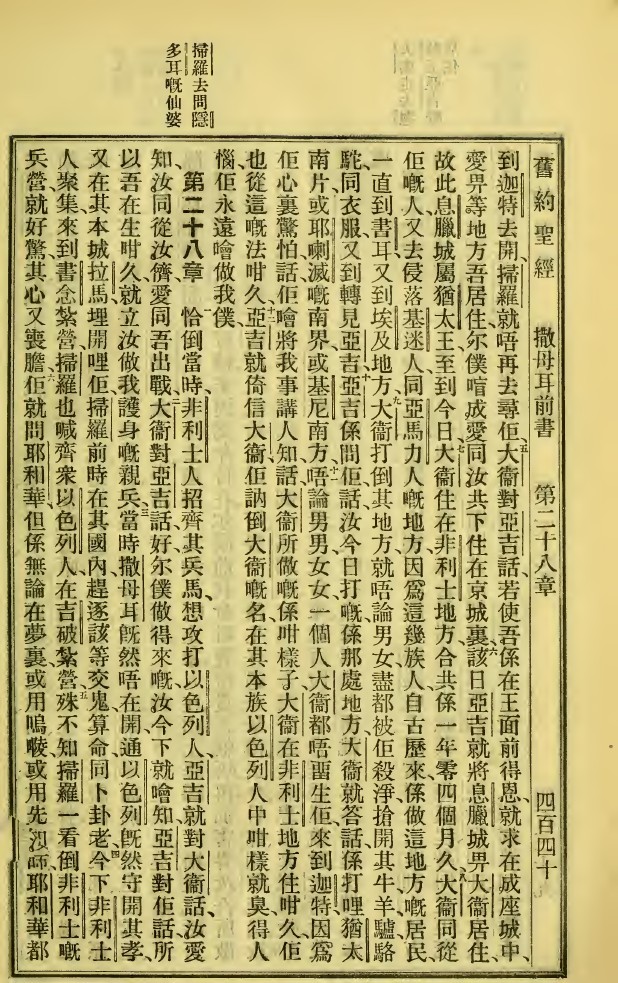 掃羅去問隱
多耳嘅仙婆
舊約聖經 撒母耳前書 第二十八章 四百四十
到迦特去開、掃羅就唔再去尋佢、五大衞對亞吉話、若使吾係在王面前得恩、就求在成座城中、
愛畀等地方吾居住、尔僕唷成愛同汝共下住在京城裏、六該日亞吉就將息臘城畀大衞居住、
故此息臘城屬猶太王至到今日、七大衞住在非利士地方、合共係一年零四個月久、八大衞同從
佢嘅人又去侵落基迷人同亞馬力人嘅地方、因爲這幾族人自古歷來係做這地方嘅居民、
一直到書耳又到埃及地方、九大衞打倒其地方、就唔論男女盡都被佢殺淨、搶開其牛羊驢駱
駝同衣服、又到轉見亞吉、十亞吉係問佢話、汝今日打嘅係那處地方、大衞就答話、係打哩猶太
南片、或耶喇滅嘅南界、或基尼南方、十一唔論男男女女一個人、大衞都唔留生佢來到迦特、因爲
佢心裏驚怕話、佢噲將我事講人知話、大衞所做嘅係咁樣子、大衞在非利士地方住咁久、佢
也從這嘅法咁久、十二亞吉就倚信大衞、佢訥倒大衞嘅名在其本族以色列人中咁樣就臭得人
惱、佢永遠噲做我僕、
第二十八章 一恰倒當時、非利士人招齊其兵馬、想攻打以色列人、亞吉就對大衞話、汝愛
知、汝同從汝儕愛同吾出戰、二大衞對亞吉話、好、尔僕做得來嘅、汝今下就噲知、亞吉對佢話、所
以吾在生咁久、就立汝做我護身嘅親兵、三當時撒母耳旣然唔在開、通以色列旣然守開其孝、
又在其本城拉馬埋開哩佢、掃羅前時在其國內趕逐該等交鬼算命同卜卦老、四今下非利士
人聚集來到書念紮營、掃羅也喊齊衆以色列人在吉破紮營、五殊不知掃羅一看倒非利士嘅
兵營、就好驚、其心又喪膽、六佢就問耶和華、但係無論在夢裏、或用嗚𠺝、或用先知師、耶和華都